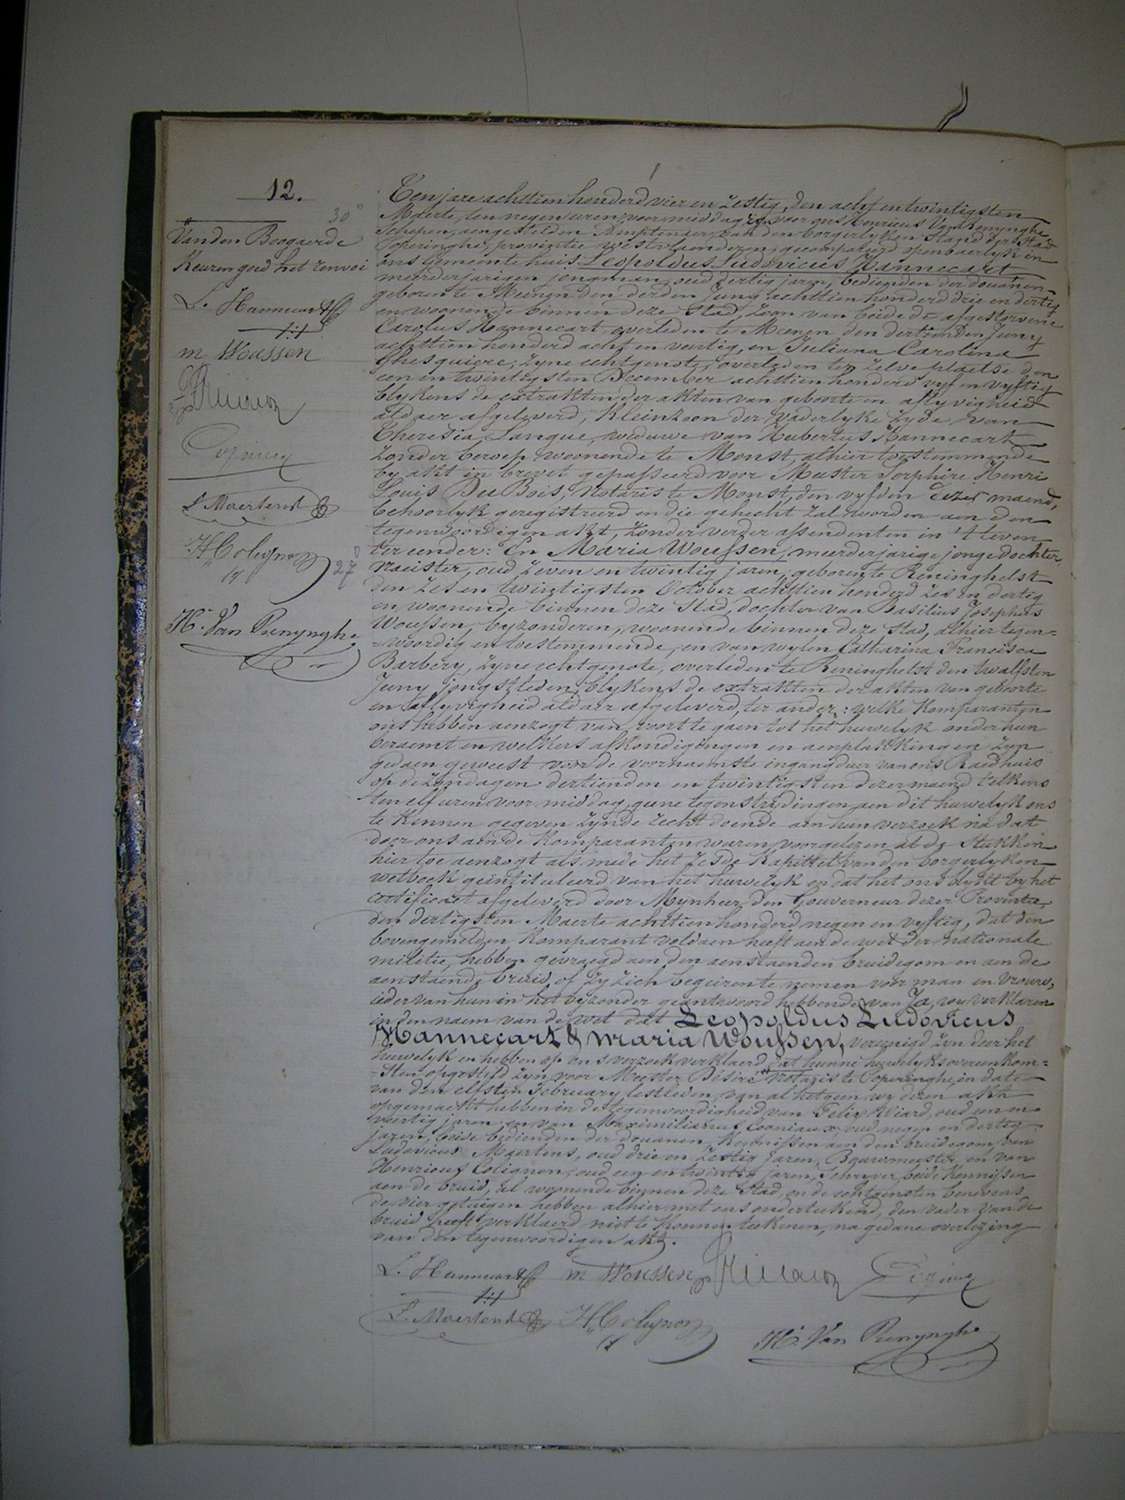 12.
30
Vanden Bogaerde
Keuren goed het renvoi
L. Hannecart
m Woussen
L. Maertens
H. Colignon
27
H. Van Renynghe
Ten jare achttien honderd vier en zestig, den acht en twintigsten
Maerte, ten negen uren voormiddag, voor ons Henricus Van Renynghe
Schepen, aengestelden Amptenaer van den borgerlyken Stand der Stad
Poperinghe, provintie Westvlaenderen, gecompareerd openbaerlyk in
ons Gemeente huis Leopoldus Ludovicus Hannecart
meerderjarigen jongman, oud dertig jaren, bedienden der douanen,
geboren te Meenen den derden Juny achttien honderd drie en dertig
en woonende binnen deze Stad, zoon van beide afgestorvene
Carolus Hannecart overleden te Meenen den dertienden Juny
achttien honderd acht en veertig, en Juliana Carolina
Ghesquiere, zyne echtgenote, overleden ten zelve plaetse den
een en twintigsten December achttien honderd vyf en vyftig
blykens de extrakten der akten van geboorte en aflyvigheid
aldaer afgeleverd, Kleinzoon der vaderlyke zyde van
Theresia Lanque, weduwe van Hubertus Hannecart
zonder beroep woonende te Monst, alhier toestemmende
by akt in brevet gepasseerd voor Meester Henri
Louis DuBois, Notaris te Monst, den vyfden dezer maend,
behoorlyk geregistreerd en die gehecht zal worden aen den
tegenwoordigen akt, zonder verder assendenten in 't leven
ter eender: En Maria Woussen, meerderjarige jonge dochter,
naeister, oud zeven en twintig jaren, geboren te Reninghelst
den zes en twintigsten October achttien honderd zes en dertig
en woonende binnen deze Stad, dochter van Basilius Josephus
Woussen, byzonderen, woonende binnen deze Stad, alhier tegen-
-woordig en toestemmende, en van wylen Catharina Francisca
Barbery, zyne echtgenote, overleden te Reninghelst den twaelfsten
Juny jongstleden, blykens de extrakten der akten van geboorte
en aflyvigheid aldaer afgeleverd, ter ander: welke Komparanten
ons hebben aenzogt van voort te gaen tot het huwelyk onder hun
beraemt en welkers afkondigingen en aenplakkingen zyn
gedaen geweest voor de voornaemste ingangdeur van ons Raedhuis
op de zondagen dertienden en twintigsten dezer maend telkens
ten elf uren voor middag, geene tegenstrydingen aen dit huwelyk ons
te kennen gegeven zynde recht doende aen hun verzoek na dat
door ons aen de Komparanten waren voorgelezen al de Stukken
hier toe aenzogt als mede het zesde Kapittel van den borgerlyken
wetboek geintituleerd van het huwelyk en dat het ons blykt by het
certificaet afgeleverd door Mynheer den Gouverneur dezer Provintie,
den dertigsten Maerte achttien honderd negen en vyftig, dat den
bovengemelden Komparant voldaen heeft aen de wet der nationale
militie, hebben gevraegd aen den aenstaenden bruidegom en aen de
aenstaende bruid, of zy zich begeiren te nemen voor man en vrouw,
ieder van hun in het byzonder geantwoord hebbende van Ja, wy verklaren
in den naem van de wet dat Leopoldus Ludovicus
Hannecart & Maria Woussen, vereenigd zyn door het
huwelyk en hebben op ons verzoek verklaerd dat hunne huwelyksovereenkom-
-sten opgesteld zyn voor Meester Désiré Notaris te Poperinghe in date
van den elfsten February lestleden, van al hetgeen wy dezen akt
opgemaekt hebben in de tegenwoordigheid van Felix Riard, oud een en
veertig jaren, en van Maximilianus Cooniaux, oud negen en dertig
jaren, beide bedienden der douanen, Kennissen aen den bruidegom, van
Ludovicus Maertens, oud drie en zestig jaren, Bouwmeester, en van
Henricus Colignon, oud een en twintig jaren, Schryver, beide kennissen
aen de bruid, al woonende binnen deze Stad, en de echtgenoten benevens
de vier getuigen hebben alhier met ons onderteekend, den vader van de
bruid heeft verklaerd niet te kunnen teekenen, na gedane overlezing
van den tegenwoordigen akt.
L. Hannecart m Woussen
L. Maertens H. Colignon
H. Van Renynghe